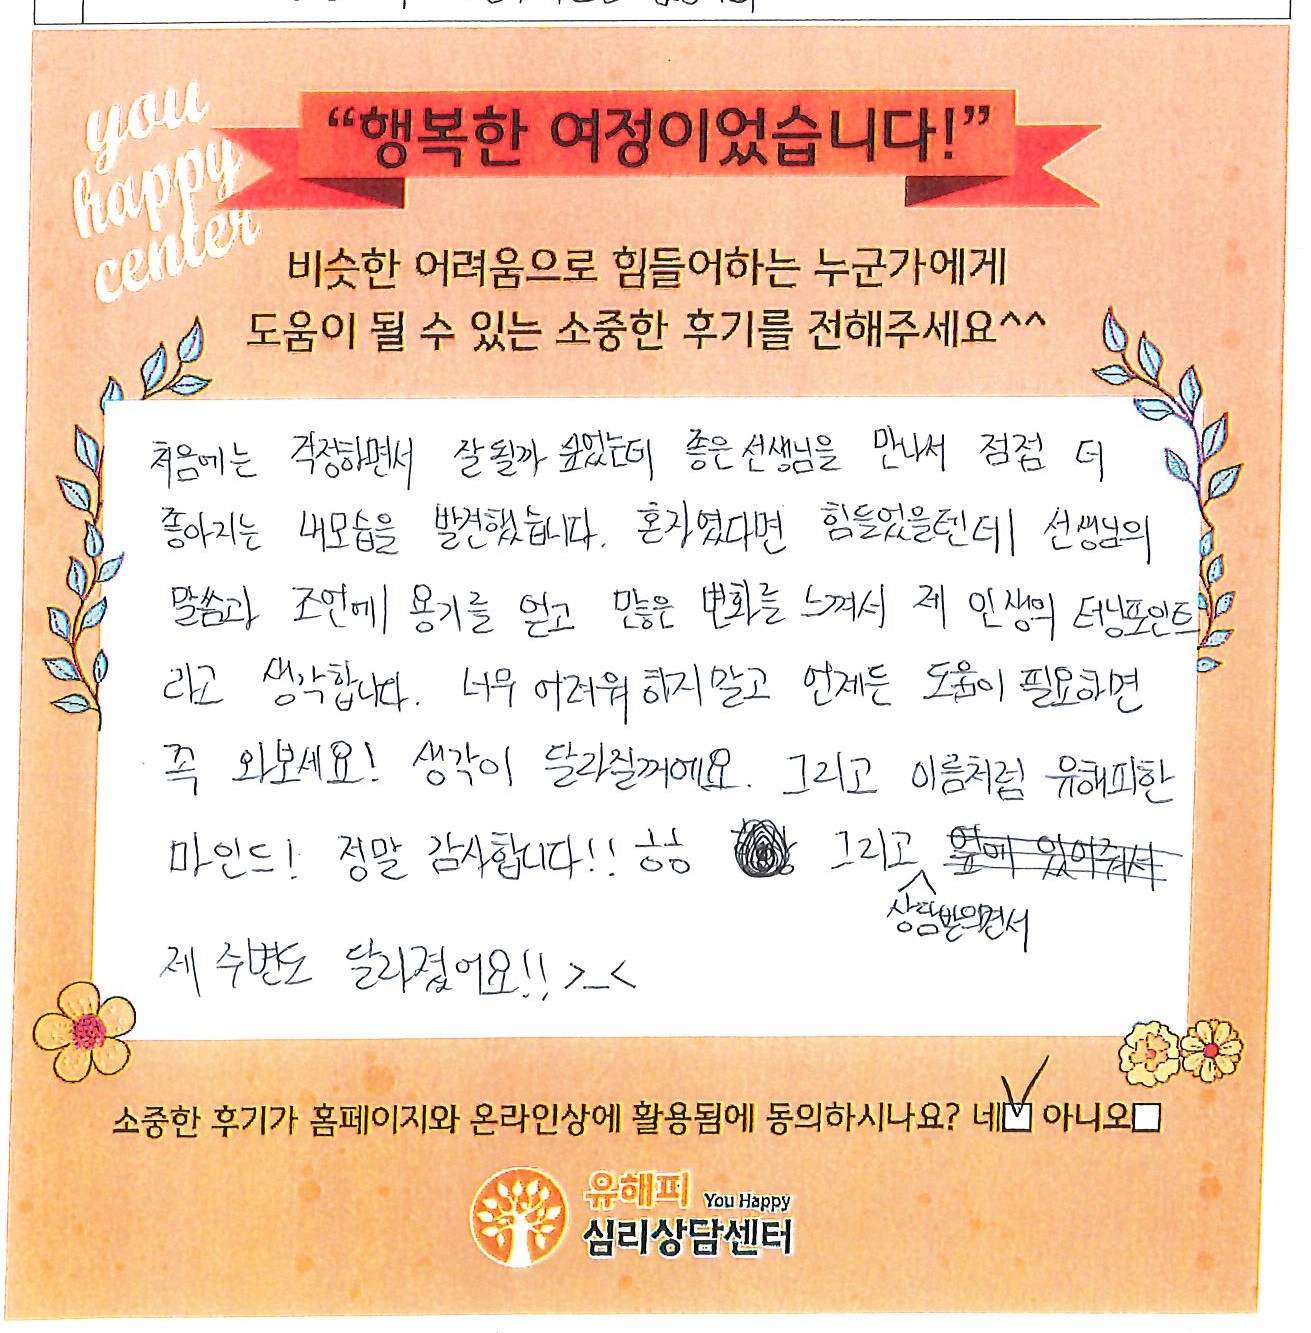 you
happy
center
“행복한 여정이었습니다!”
비슷한 어려움으로 힘들어하는 누군가에게
도움이 될 수 있는 소중한 후기를 전해주세요^^
처음에는 걱정하면서 잘 될까 싶었는데 좋은 선생님을 만나서 점점 더
좋아지는 내모습을 발견했습니다. 혼자였다면 힘들었을텐데 선생님의
말씀과 조언에 용기를 얻고 많은 변화를 느껴서 제 인생의 터닝포인트
라고 생각합니다. 너무 어려워 하지말고 언제든 도움이 필요하면
꼭 와보세요! 생각이 달라질꺼에요. 그리고 이름처럼 유해피한
마인드! 정말 감사합니다!! ㅎㅎ 그리고 옆에 있어줘서
상담받으면서
제 주변도 달라졌어요!! >_<
소중한 후기가 홈페이지와 온라인상에 활용됨에 동의하시나요? 네☑ 아니오□
유해피 You Happy
심리상담센터